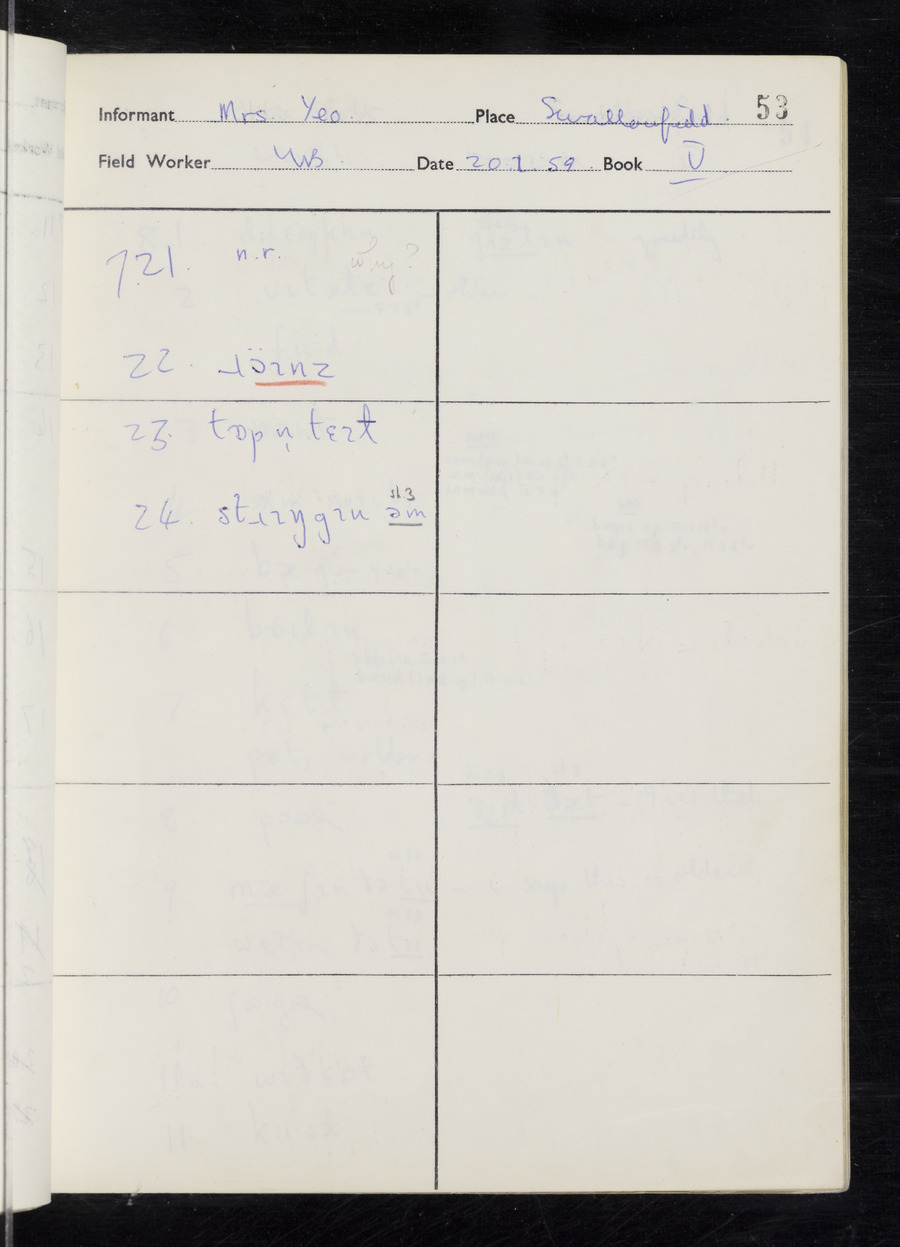 Informant Mrs. Yeo. Place Swallowfield. 53
Field Worker WB. Date 20.1.59. Book V
7.21. n.r. why?
22. ɹɔ̈ːnz
23. tɒpn̩tɛɪt
st.3
24. stɹɪŋgɪn əm